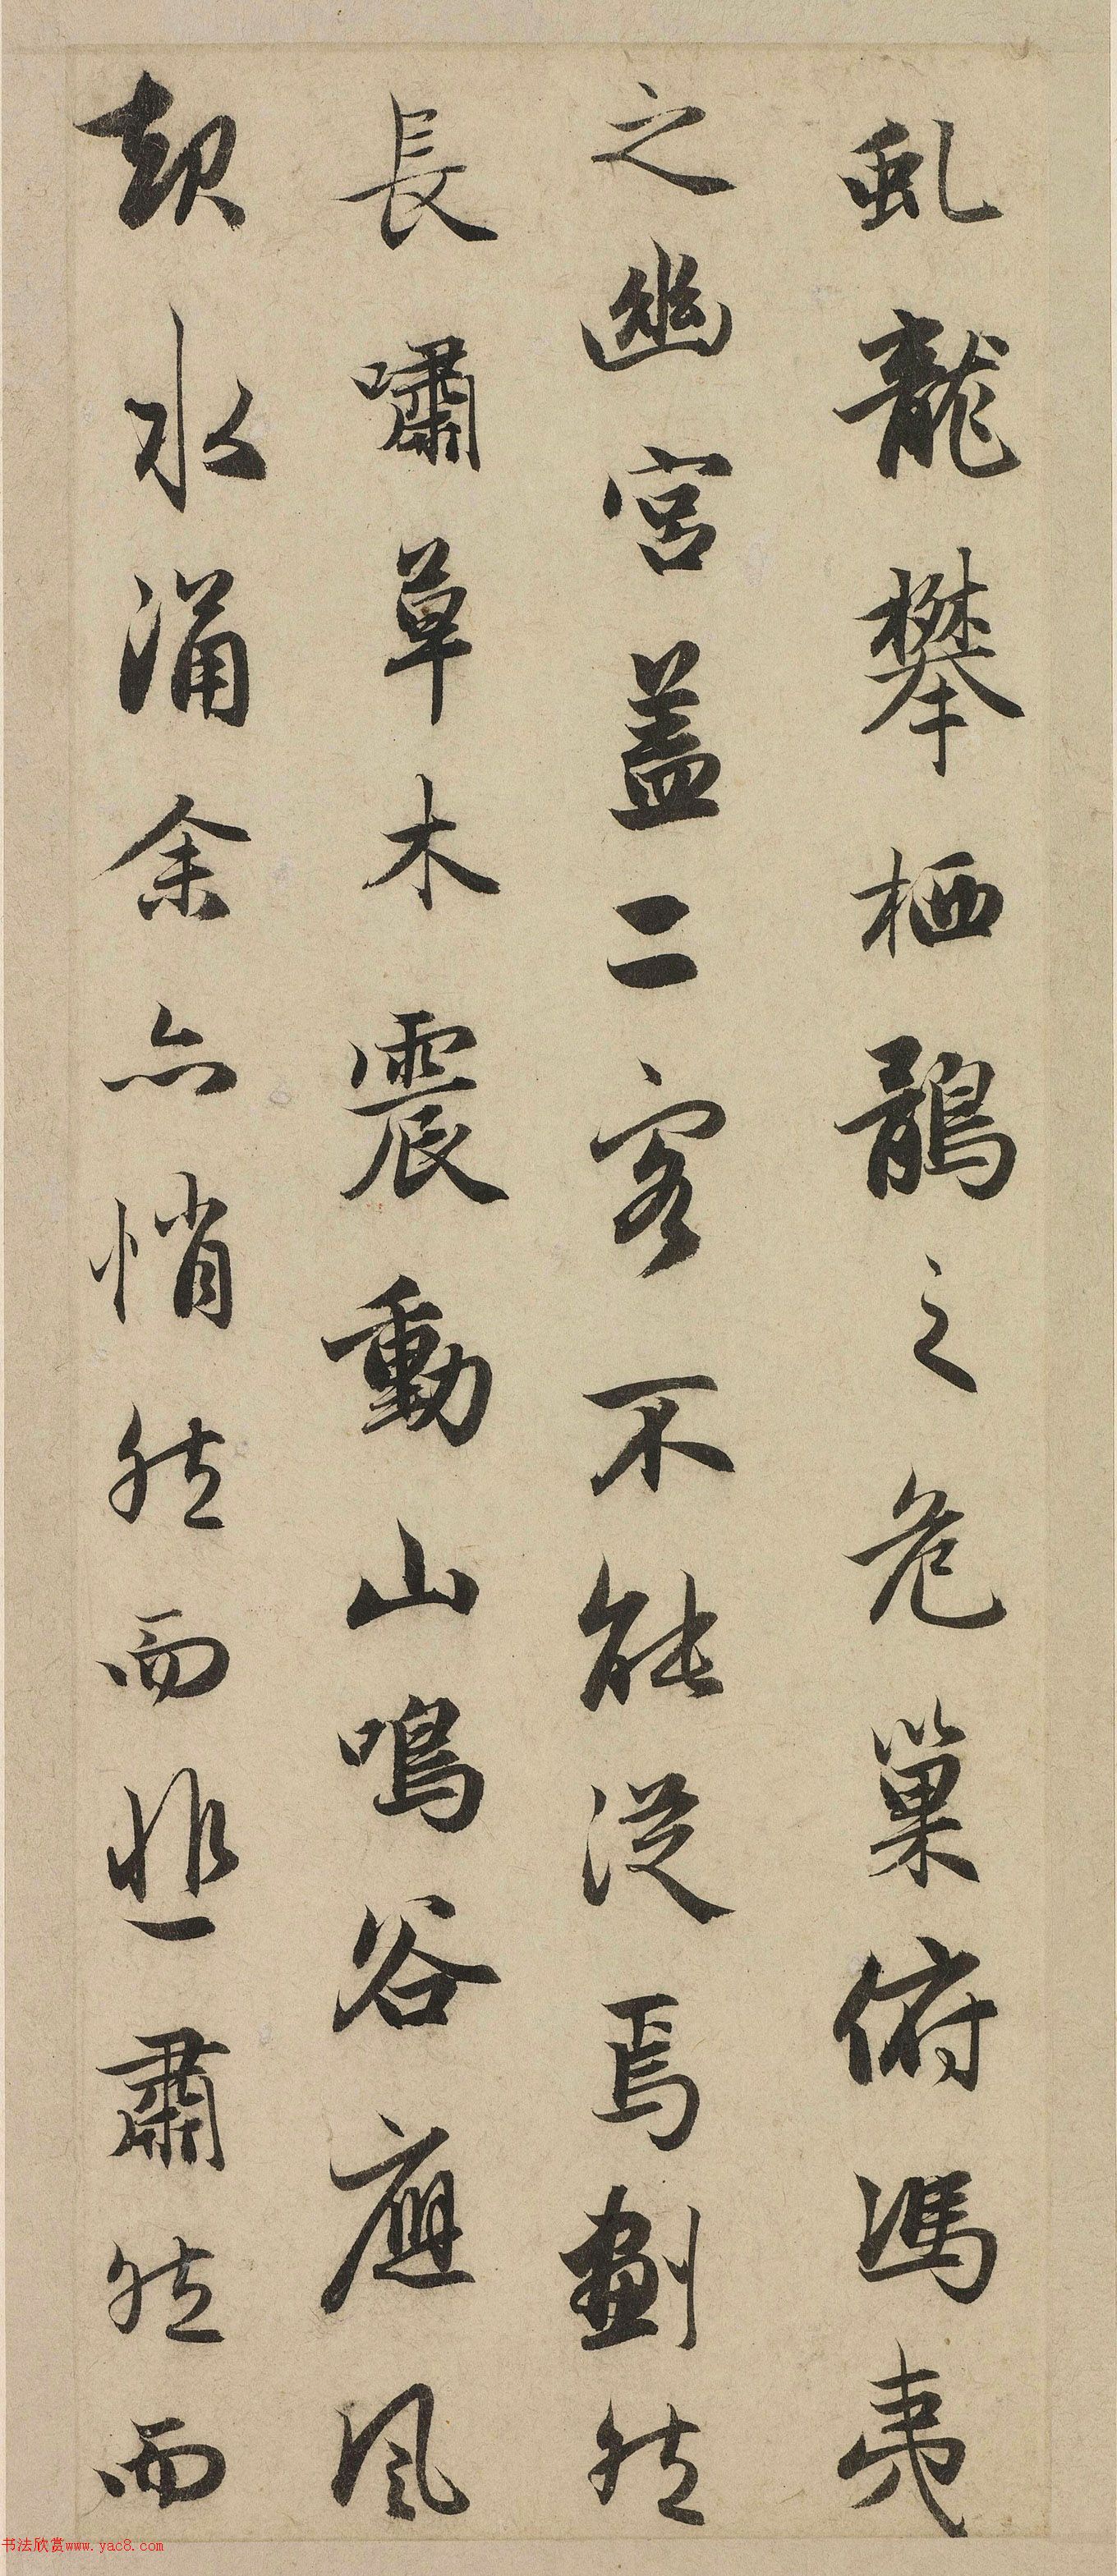 虬龍攀栖鶻之危巢俯馮夷
之幽宮蓋二客不能從焉劃然
長嘯草木震動山鳴谷應風
起水涌余亦悄然而悲肅然而
书法欣赏www.yac8.com